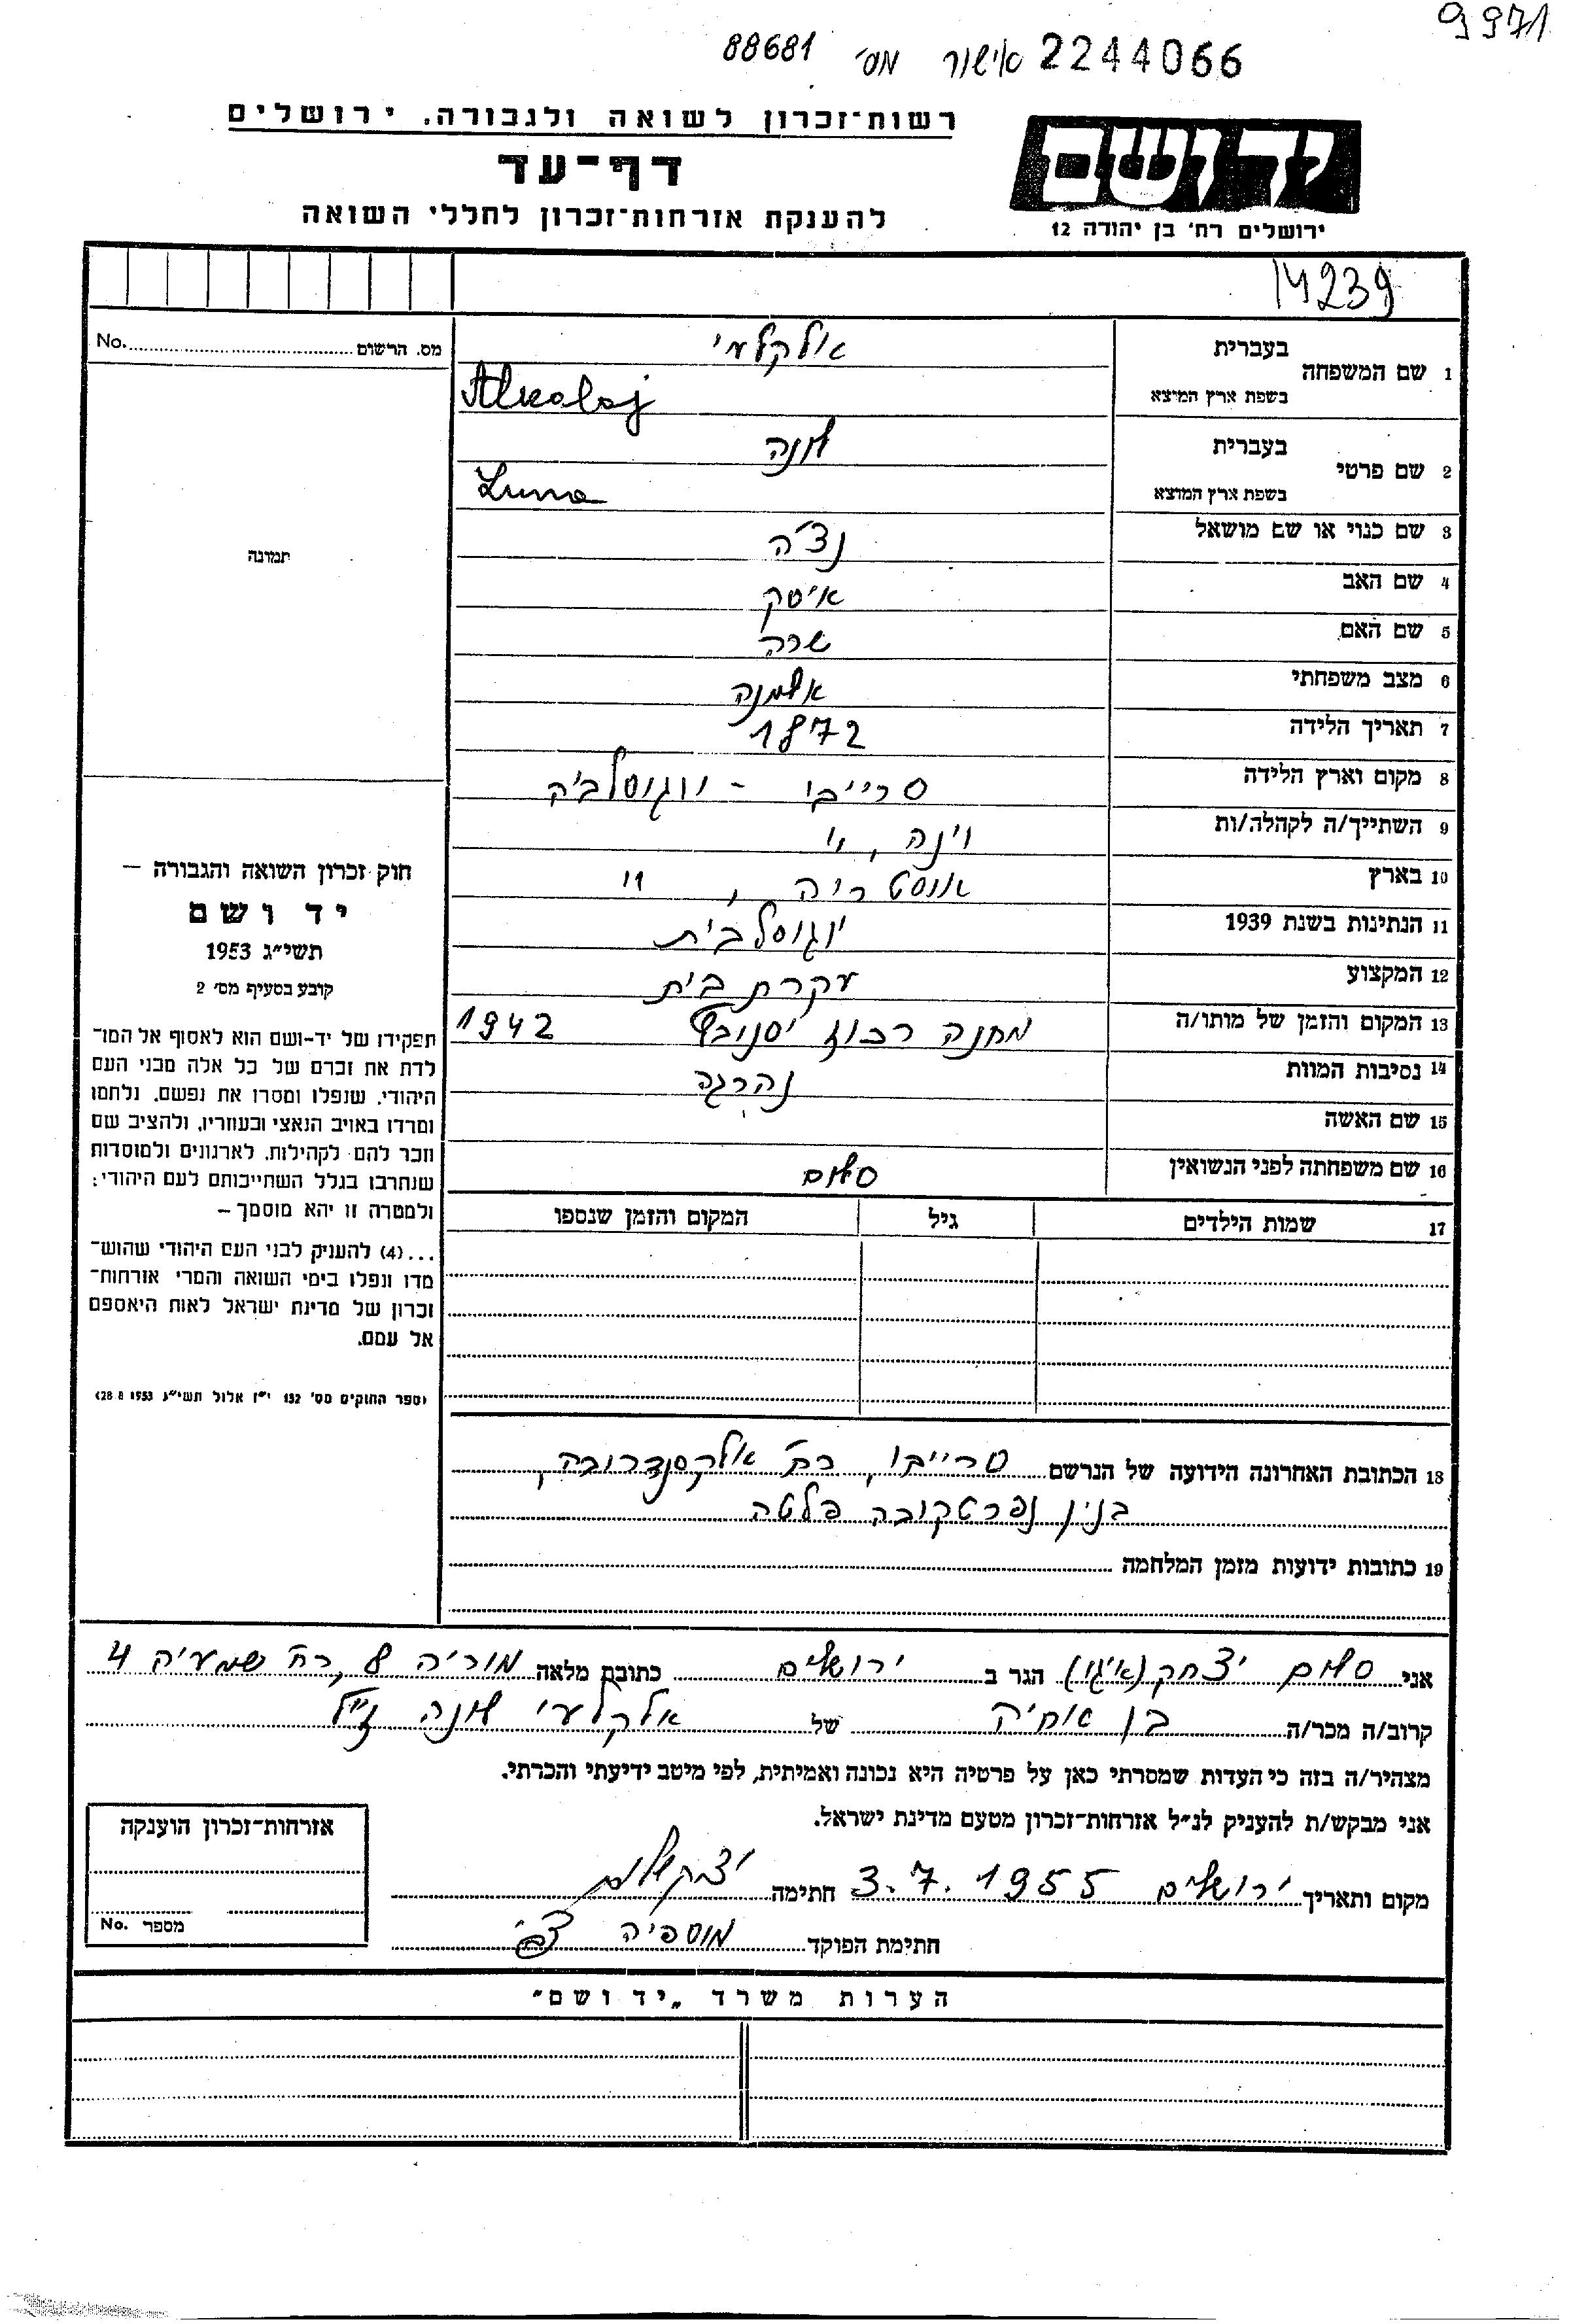 9971
2244066 אישור מס׳ 88681
רשות־זכרון לשואה ולגבורה, ירושלים
יד ושם
דף־עד
להענקת אזרחות־זכרון לחללי השואה
ירושלים רח׳ בן יהודה 12
14239
מס. הרשום No.
תמונה
1 שם המשפחה בעברית אלקלעי
בשפת ארץ המוצא Alkalaj
2 שם פרטי בעברית לונה
בשפת ארץ המוצא Luna
3 שם כנוי או שם מושאל נצ׳ה
4 שם האב איטק
5 שם האם שרה
6 מצב משפחתי אלמנה
7 תאריך הלידה 1872
8 מקום וארץ הלידה סרייבו - יוגוסלביה
9 השתייך/ה לקהלה/ות וינה, "
10 בארץ אוסטריה, "
11 הנתינות בשנת 1939 יוגוסלבית
12 המקצוע עקרת בית
13 המקום והזמן של מותו/ה מחנה רכוז יסנובץ 1942
14 נסיבות המוות נהרגה
15 שם האשה
16 שם משפחתה לפני הנשואין סלום
17 שמות הילדים גיל המקום והזמן שנספו
חוק זכרון השואה והגבורה —
יד ושם
תשי״ג 1953
קובע בסעיף מס׳ 2
תפקידו של יד-ושם הוא לאסוף אל המו־
לדת את זכרם של כל אלה מבני העם
היהודי, שנפלו ומסרו את נפשם, נלחמו
ומרדו באויב הנאצי ובעוזריו, ולהציב שם
וזכר להם לקהילות, לארגונים ולמוסדות
שנחרבו בגלל השתייכותם לעם היהודי;
ולמטרה זו יהא מוסמך —
...(4) להעניק לבני העם היהודי שהוש־
מדו ונפלו בימי השואה והמרי אזרחות־
זכרון של מדינת ישראל לאות היאספם
אל עמם.
(ספר החוקים מס׳ 132 י״ז אלול תשי״ג 28.8.1953)
18 הכתובת האחרונה הידועה של הנרשם סרייבו, רח׳ אלקסנדרובה,
בנין נפרטקובה פלטה
19 כתובות ידועות מזמן המלחמה
אני סלום יצחק (איגו) הגר ב ירושלים כתובת מלאה מוריה 8, רח׳ שמעיה 4
קרוב/ה מכר/ה בן אחיה של אלקלעי לונה ז״ל
מצהיר/ה בזה כי העדות שמסרתי כאן על פרטיה היא נכונה ואמיתית, לפי מיטב ידיעתי והכרתי.
אני מבקש/ת להעניק לנ״ל אזרחות־זכרון מטעם מדינת ישראל.
מקום ותאריך ירושלים 3.7.1955 חתימה יצחק סלום
חתימת הפוקד מוספיה צבי
אזרחות־זכרון הוענקה
מספר No.
הערות משרד „יד ושם"